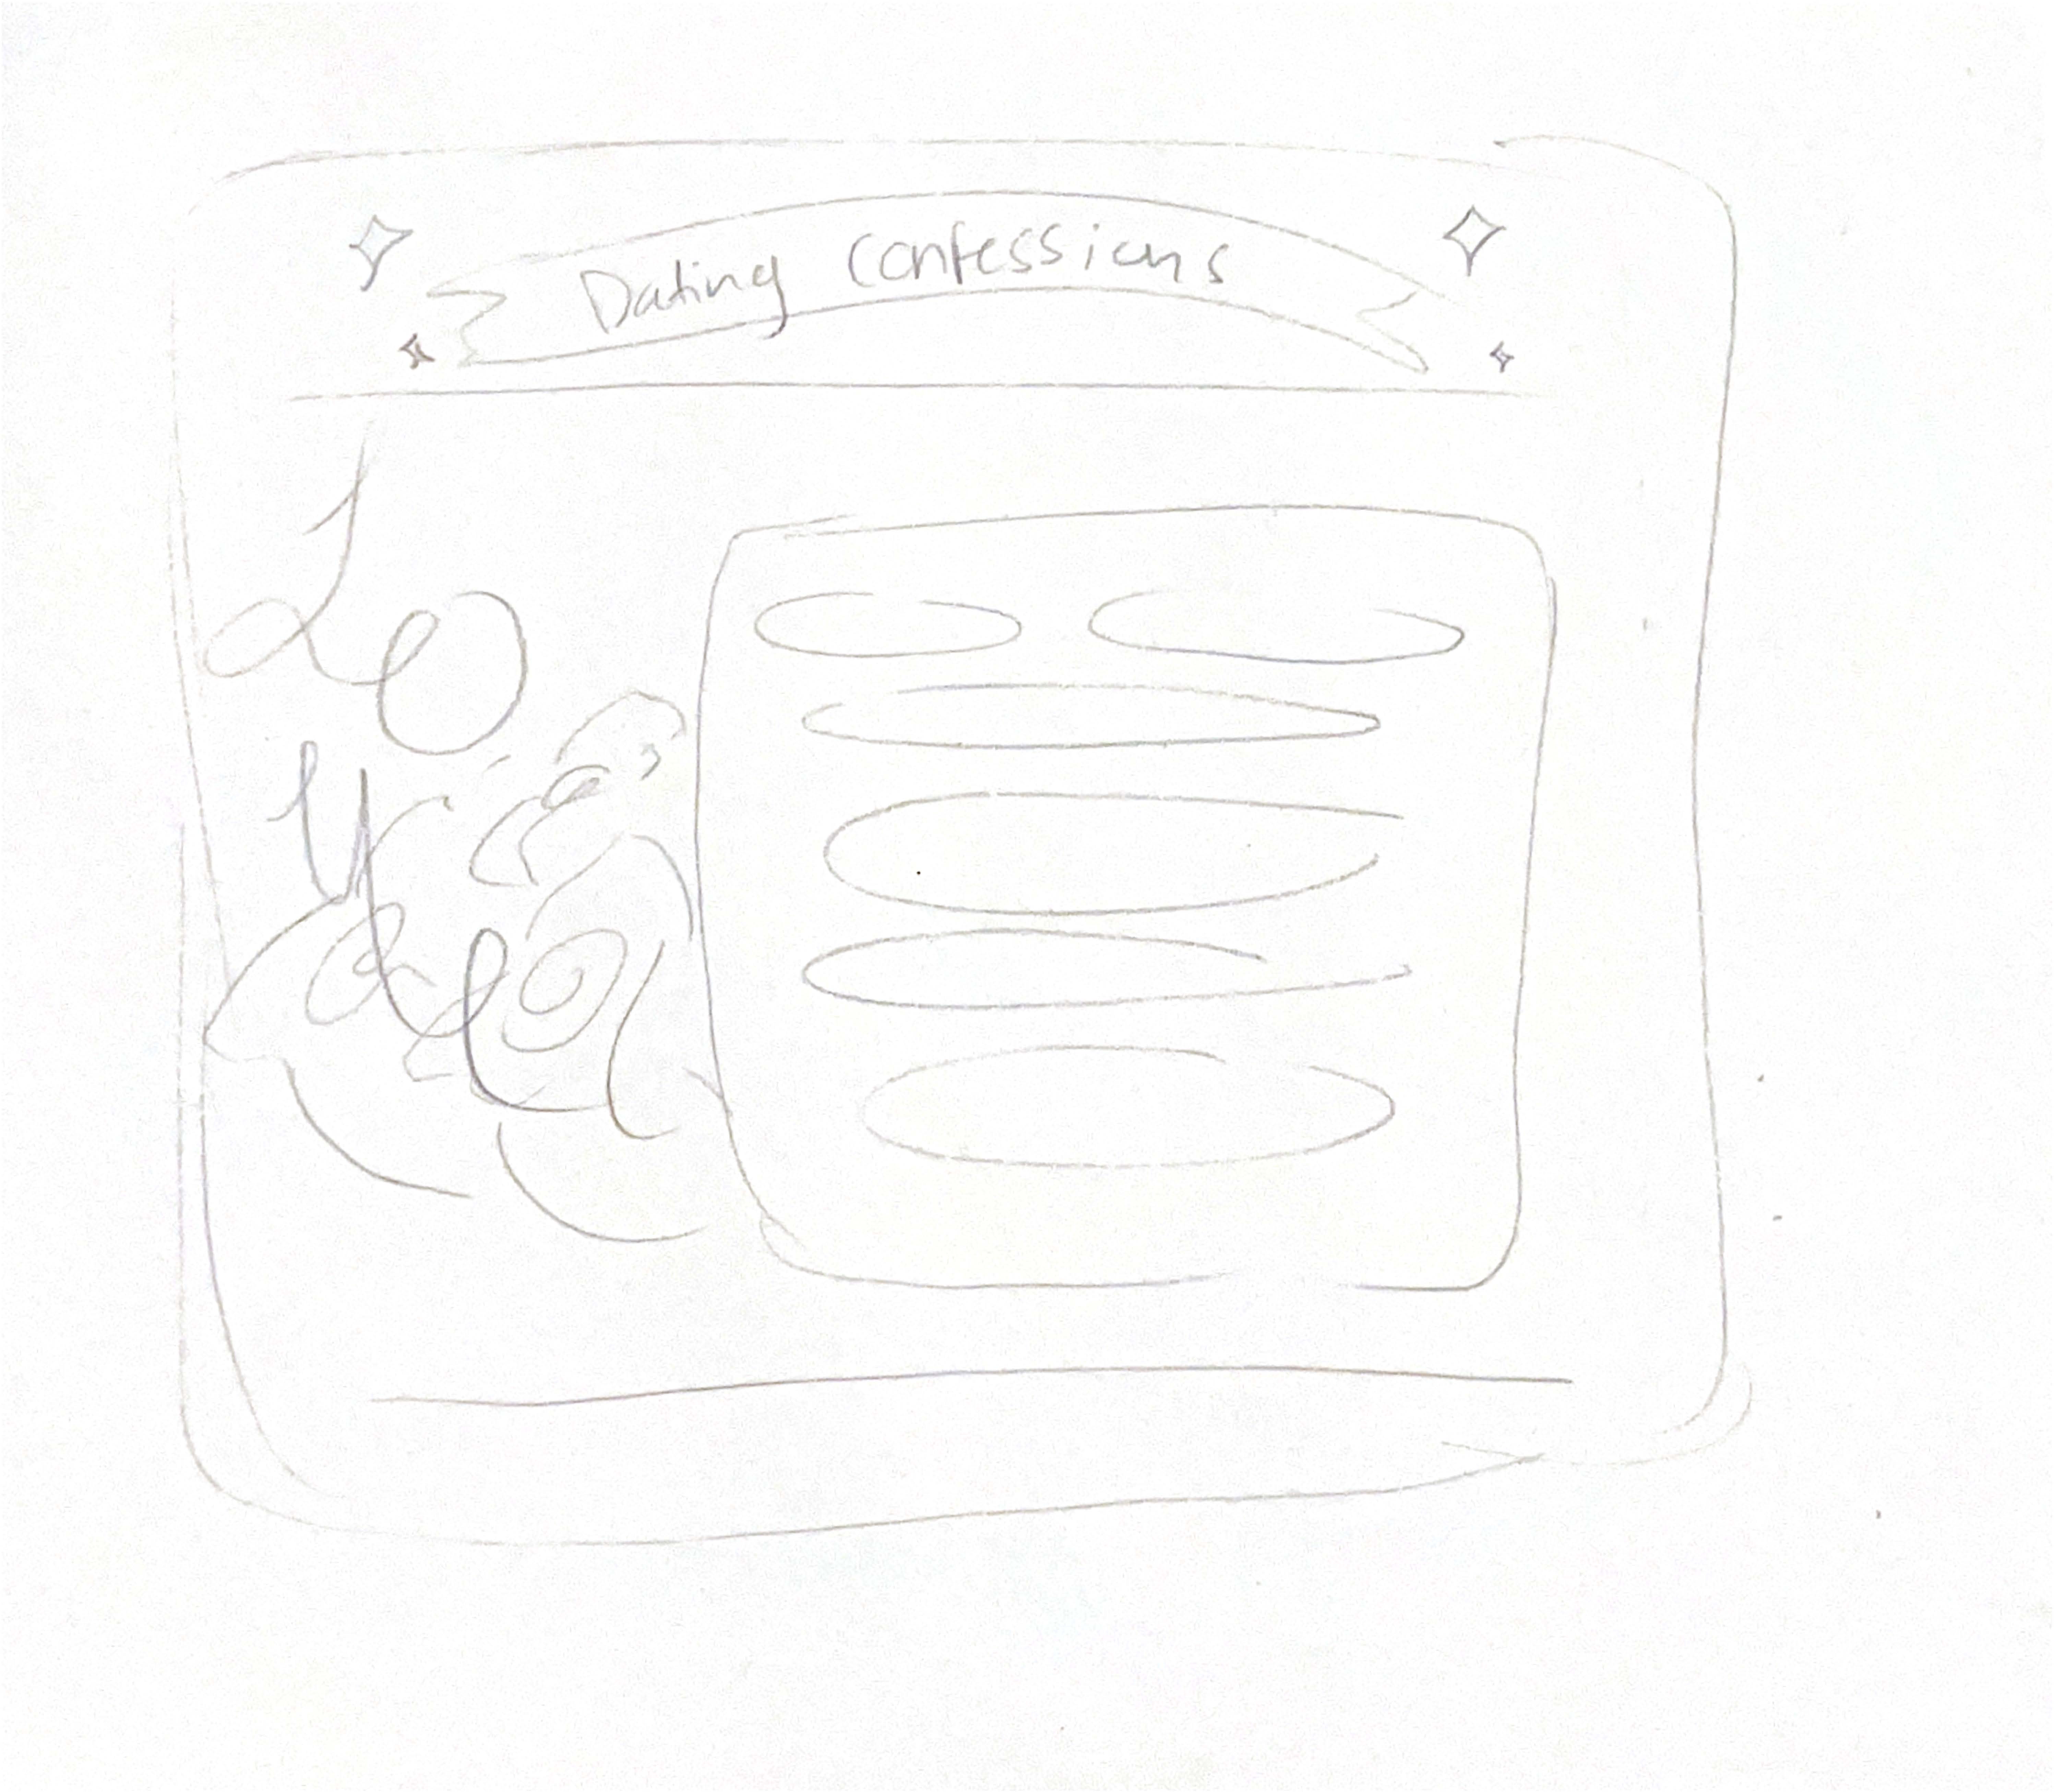 Dating Confessions
Lo
ve